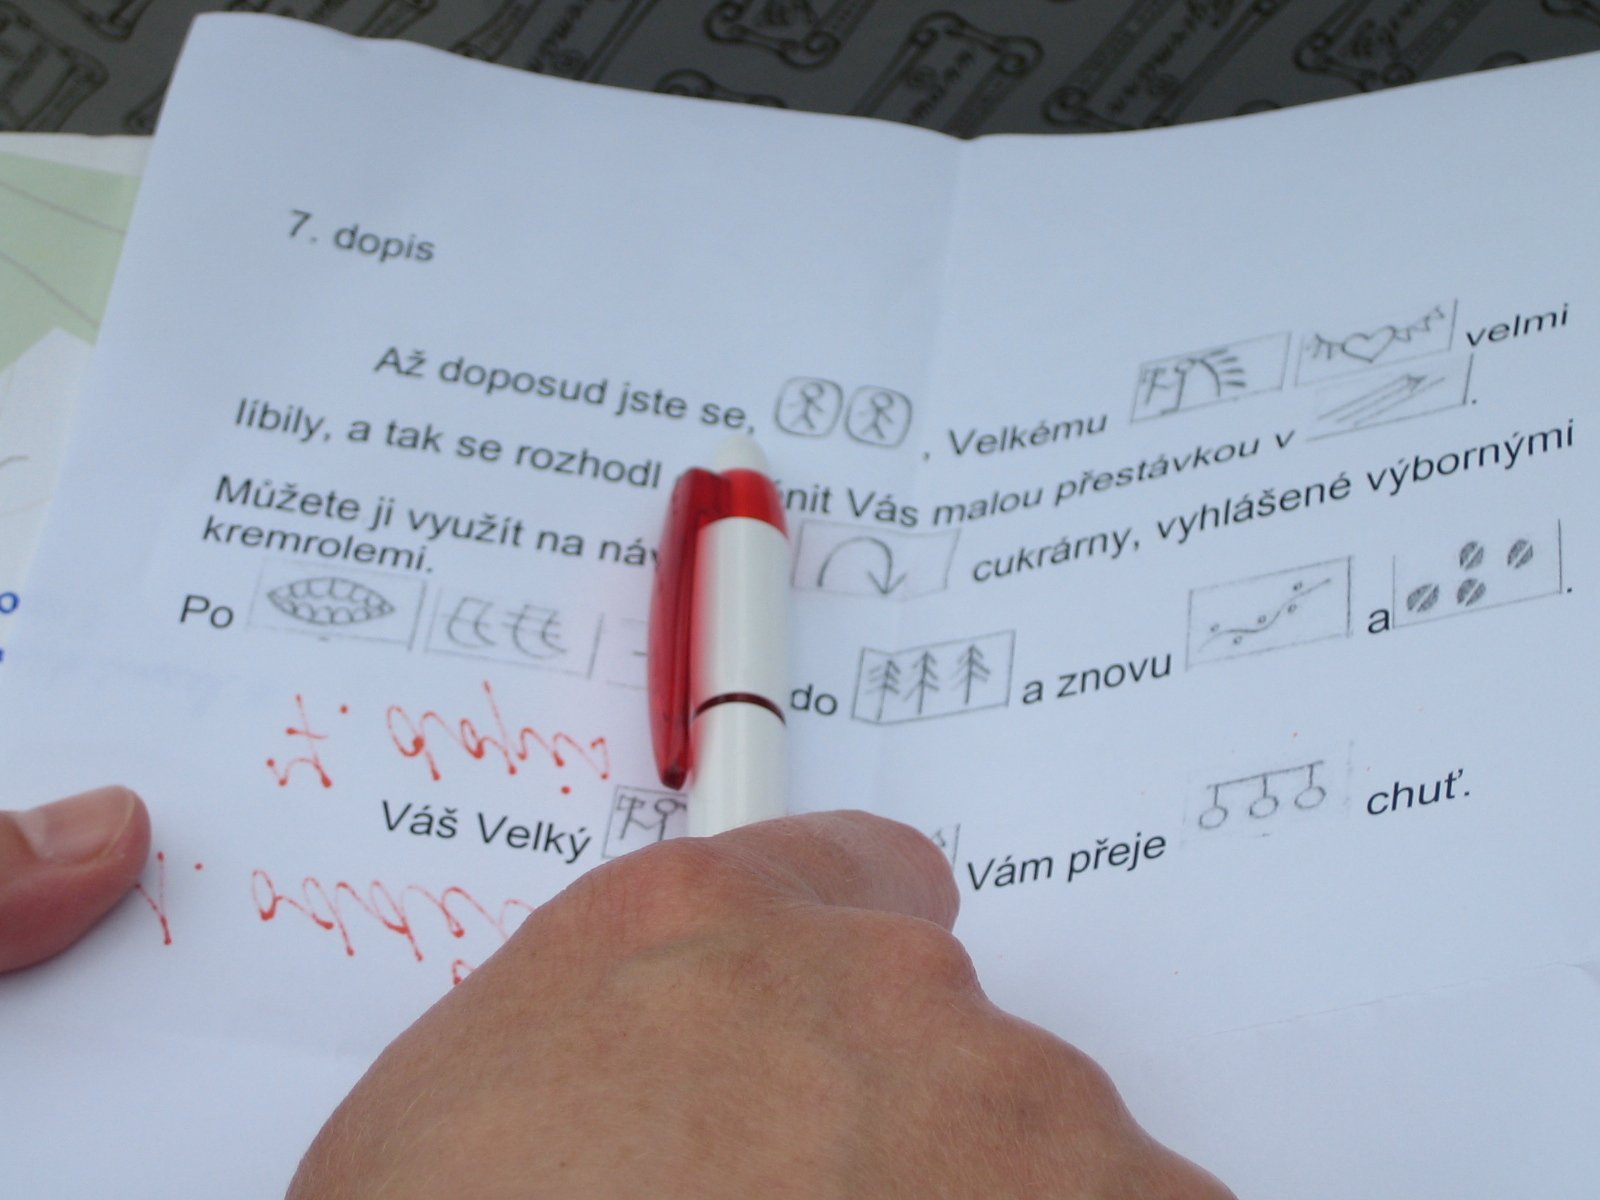 7. dopis
Až doposud jste se, , Velkému velmi
líbily, a tak se rozhodl Vás malou přestávkou v .
Můžete ji využít na cukrárny, vyhlášené výbornými
kremrolemi.
Po do a znovu a .
Váš Velký Vám přeje chuť.